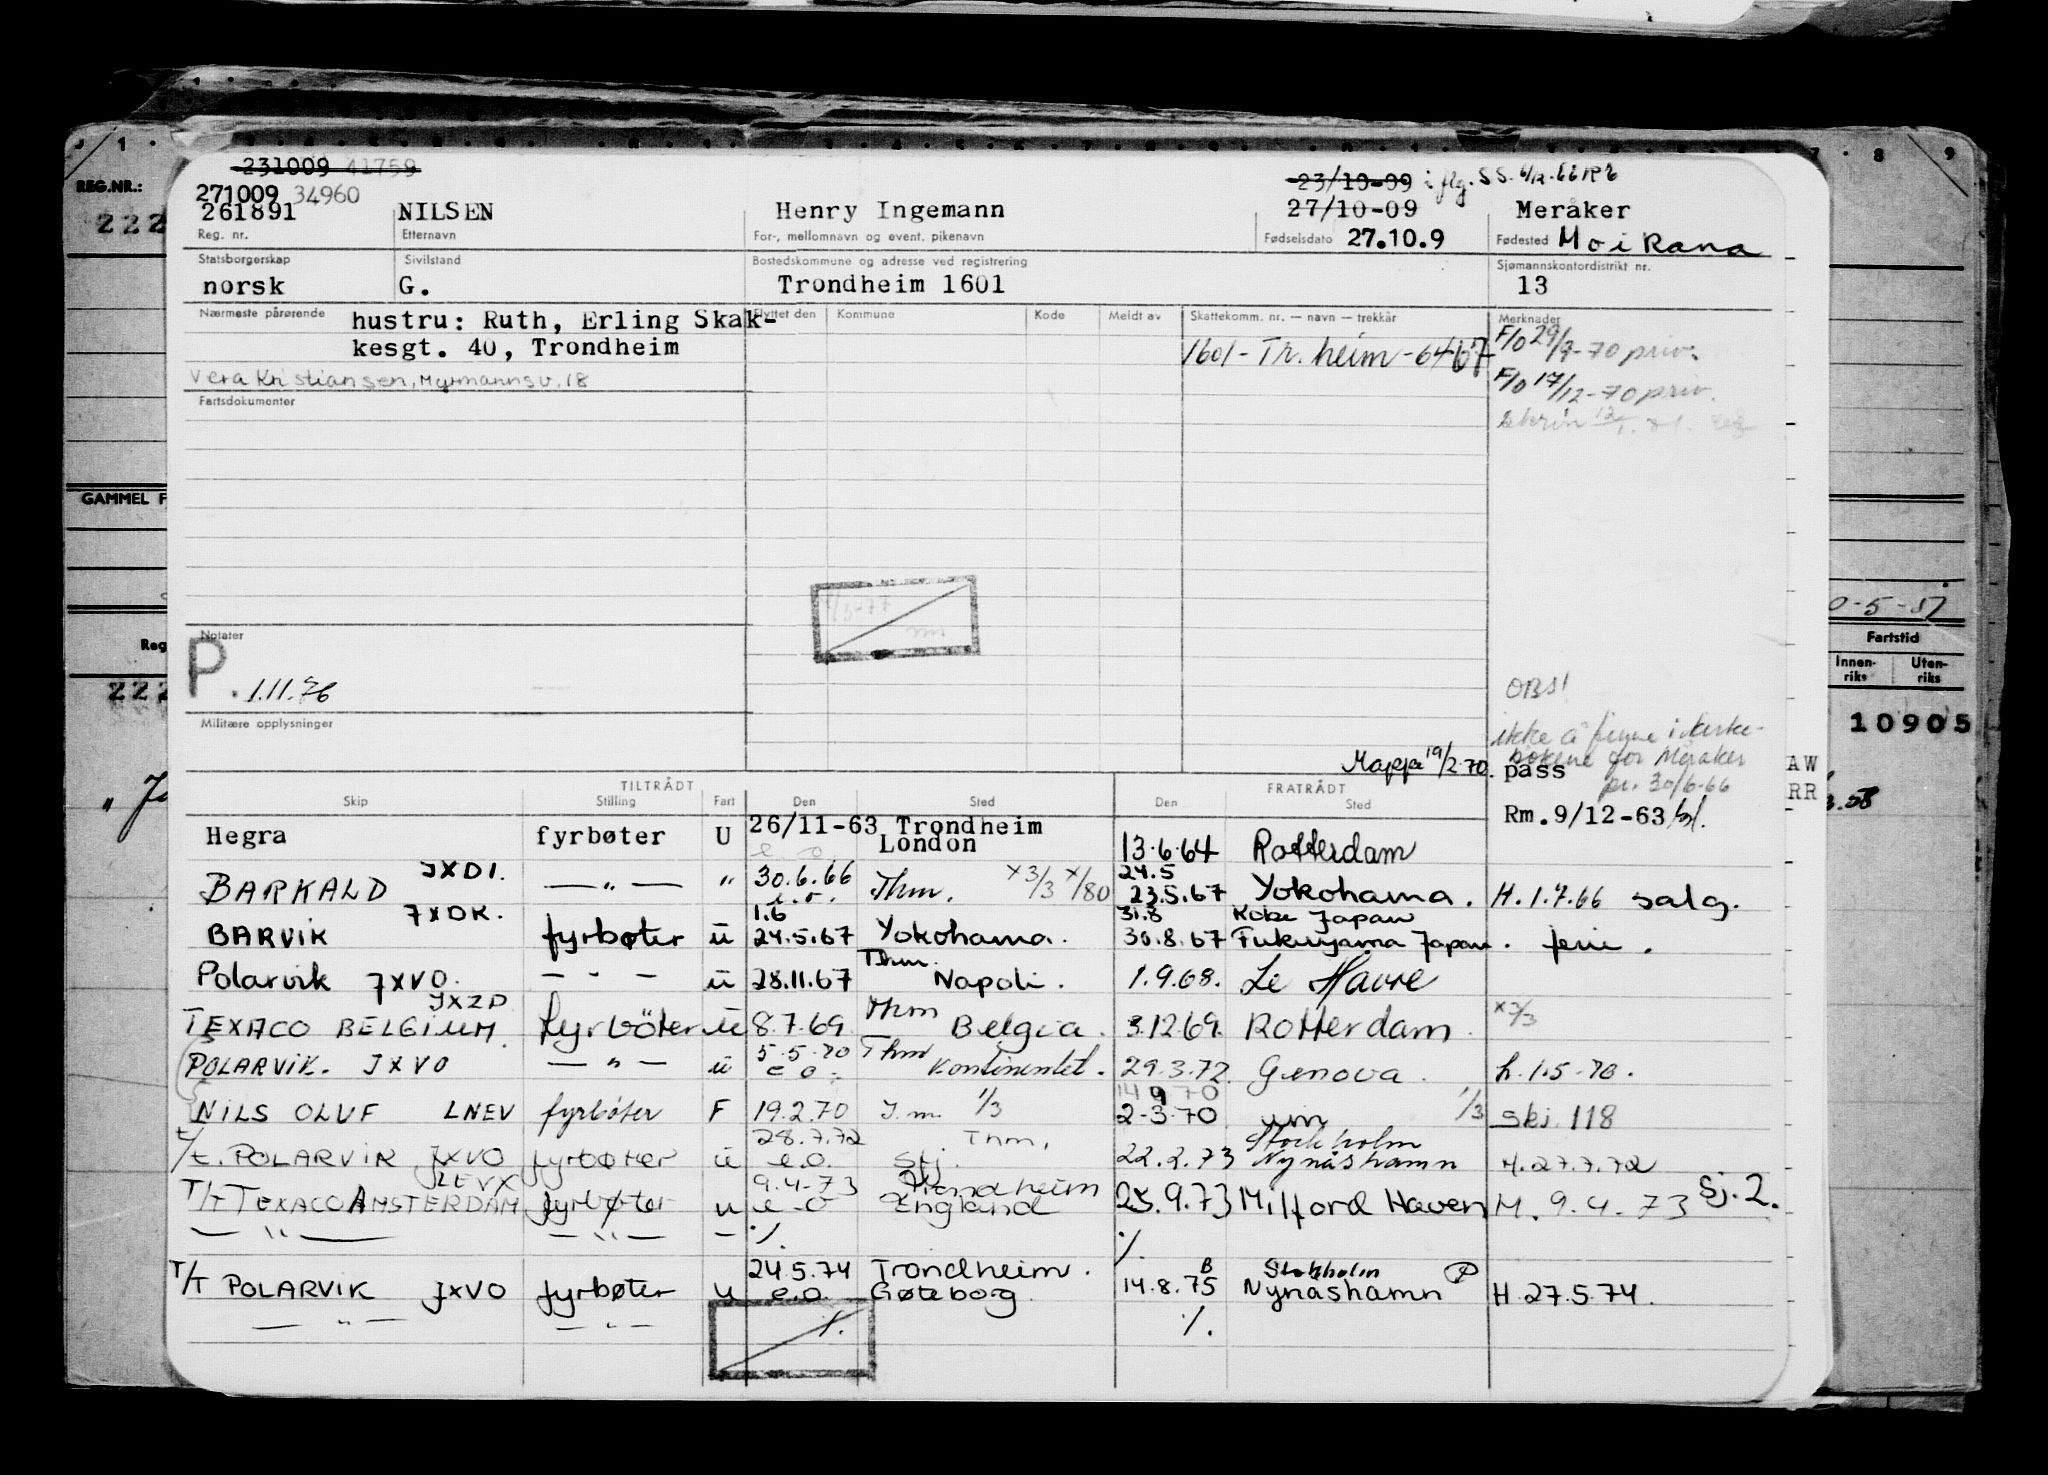 231009 41759
271009 34960
23/10-09 i flg. SS.
261891 NILSEN Henry Ingemann 27/10-09 Meråker
Reg. nr. Etternavn For-, mellomnavn og event. pikenavn Fødselsdato 27.10.9 Fødested Mo i Rana
Statsborgerskap Sivilstand Bostedskommune og adresse ved registrering Sjømannskontordistrikt nr.
norsk G. Trondheim 1601 13
Nærmeste pårørende hustru: Ruth, Erling Skak- Flyttet den Kommune Kode Meldt av Skattekomm. nr. — navn — trekkår Merknader
kesgt. 40, Trondheim 1601 - Tr.heim - 6467 F/o 29/9-70 priv.
Vera Kristiansen, Myrmannsv. 18 F/o 17/12-70 priv.
Fartsdokumenter
REG.NR.:
222
GAMMEL F
Reg
222
8 9
0-5-57
Fartstid
Innen-riks Uten-riks
10905
Notater
P. 1.11.76
Militære opplysninger
OBS!
ikke å finne i kirke-
bøkene for Meråker
pr. 30/6-66
Mappe 19/2.70. pass AW
Rm.9/12-63 RR
TILTRÅDT FRATRÅDT
Skip Stilling Fart Den Sted Den Sted
Hegra fyrbøter U 26/11-63 Trondheim London 13.6.64 Rotterdam
BARKALD JXDI. — " — " 30.6.66 e.o. Thm. x3/3 x/80 24.5 23.5.67 Yokohama. H. 1.7.66 salg.
BARVIK JXDK. fyrbøter u 1.6 24.5.67 Yokohama. 31.8 30.8.67 Kobe Japan Fukuyama Japan. ferie.
Polarvik JXVO. — " — u 28.11.67 Thm. Napoli. 1.9.68. Le Havre
TEXACO BELGIUM. JXZD fyrböter u 8.7.69 Thm — Belgia. 3.12.69. Rotterdam. x3/3
POLARVIK. JXVO — " — u 5.5.70 e.o. Thm Kontinentet. 29.3.72 Genova. h. 1.5-70.
NILS OLUF LNEV fyrbøter F 19.2.70 J.m. 1/3 2-3.70 um 1/3 skj. 118
t/t. POLARVIK JXVO fyrbøter u 28.7.72 e.o. Thm, Stj. 22.2.73 Stockholm Nynäshamn H. 27.7.72
T/T TEXACO AMSTERDAM JLEVX fyrbøter u 9.4-73 e-o Trondheim England 25.9.73 Milford Haven M. 9.4.73 Sj. 2.
— " — — " — — %. %.
T/T POLARVIK JXVO fyrbøter u 24.5.74 e.o. Trondheim. Gøteborg. 14.8.75 B Stockholm Nynäshamn P H 27.5.74.
— " — — " — %. %.